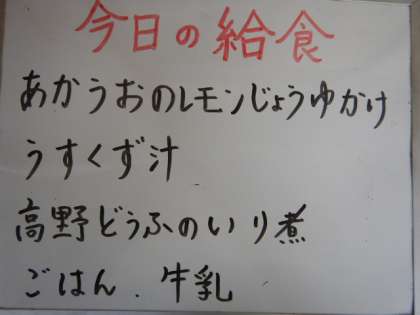 今日の給食
あかうおのレモンじょうゆかけ
うすくず汁
高野どうふのいり煮
ごはん．牛乳